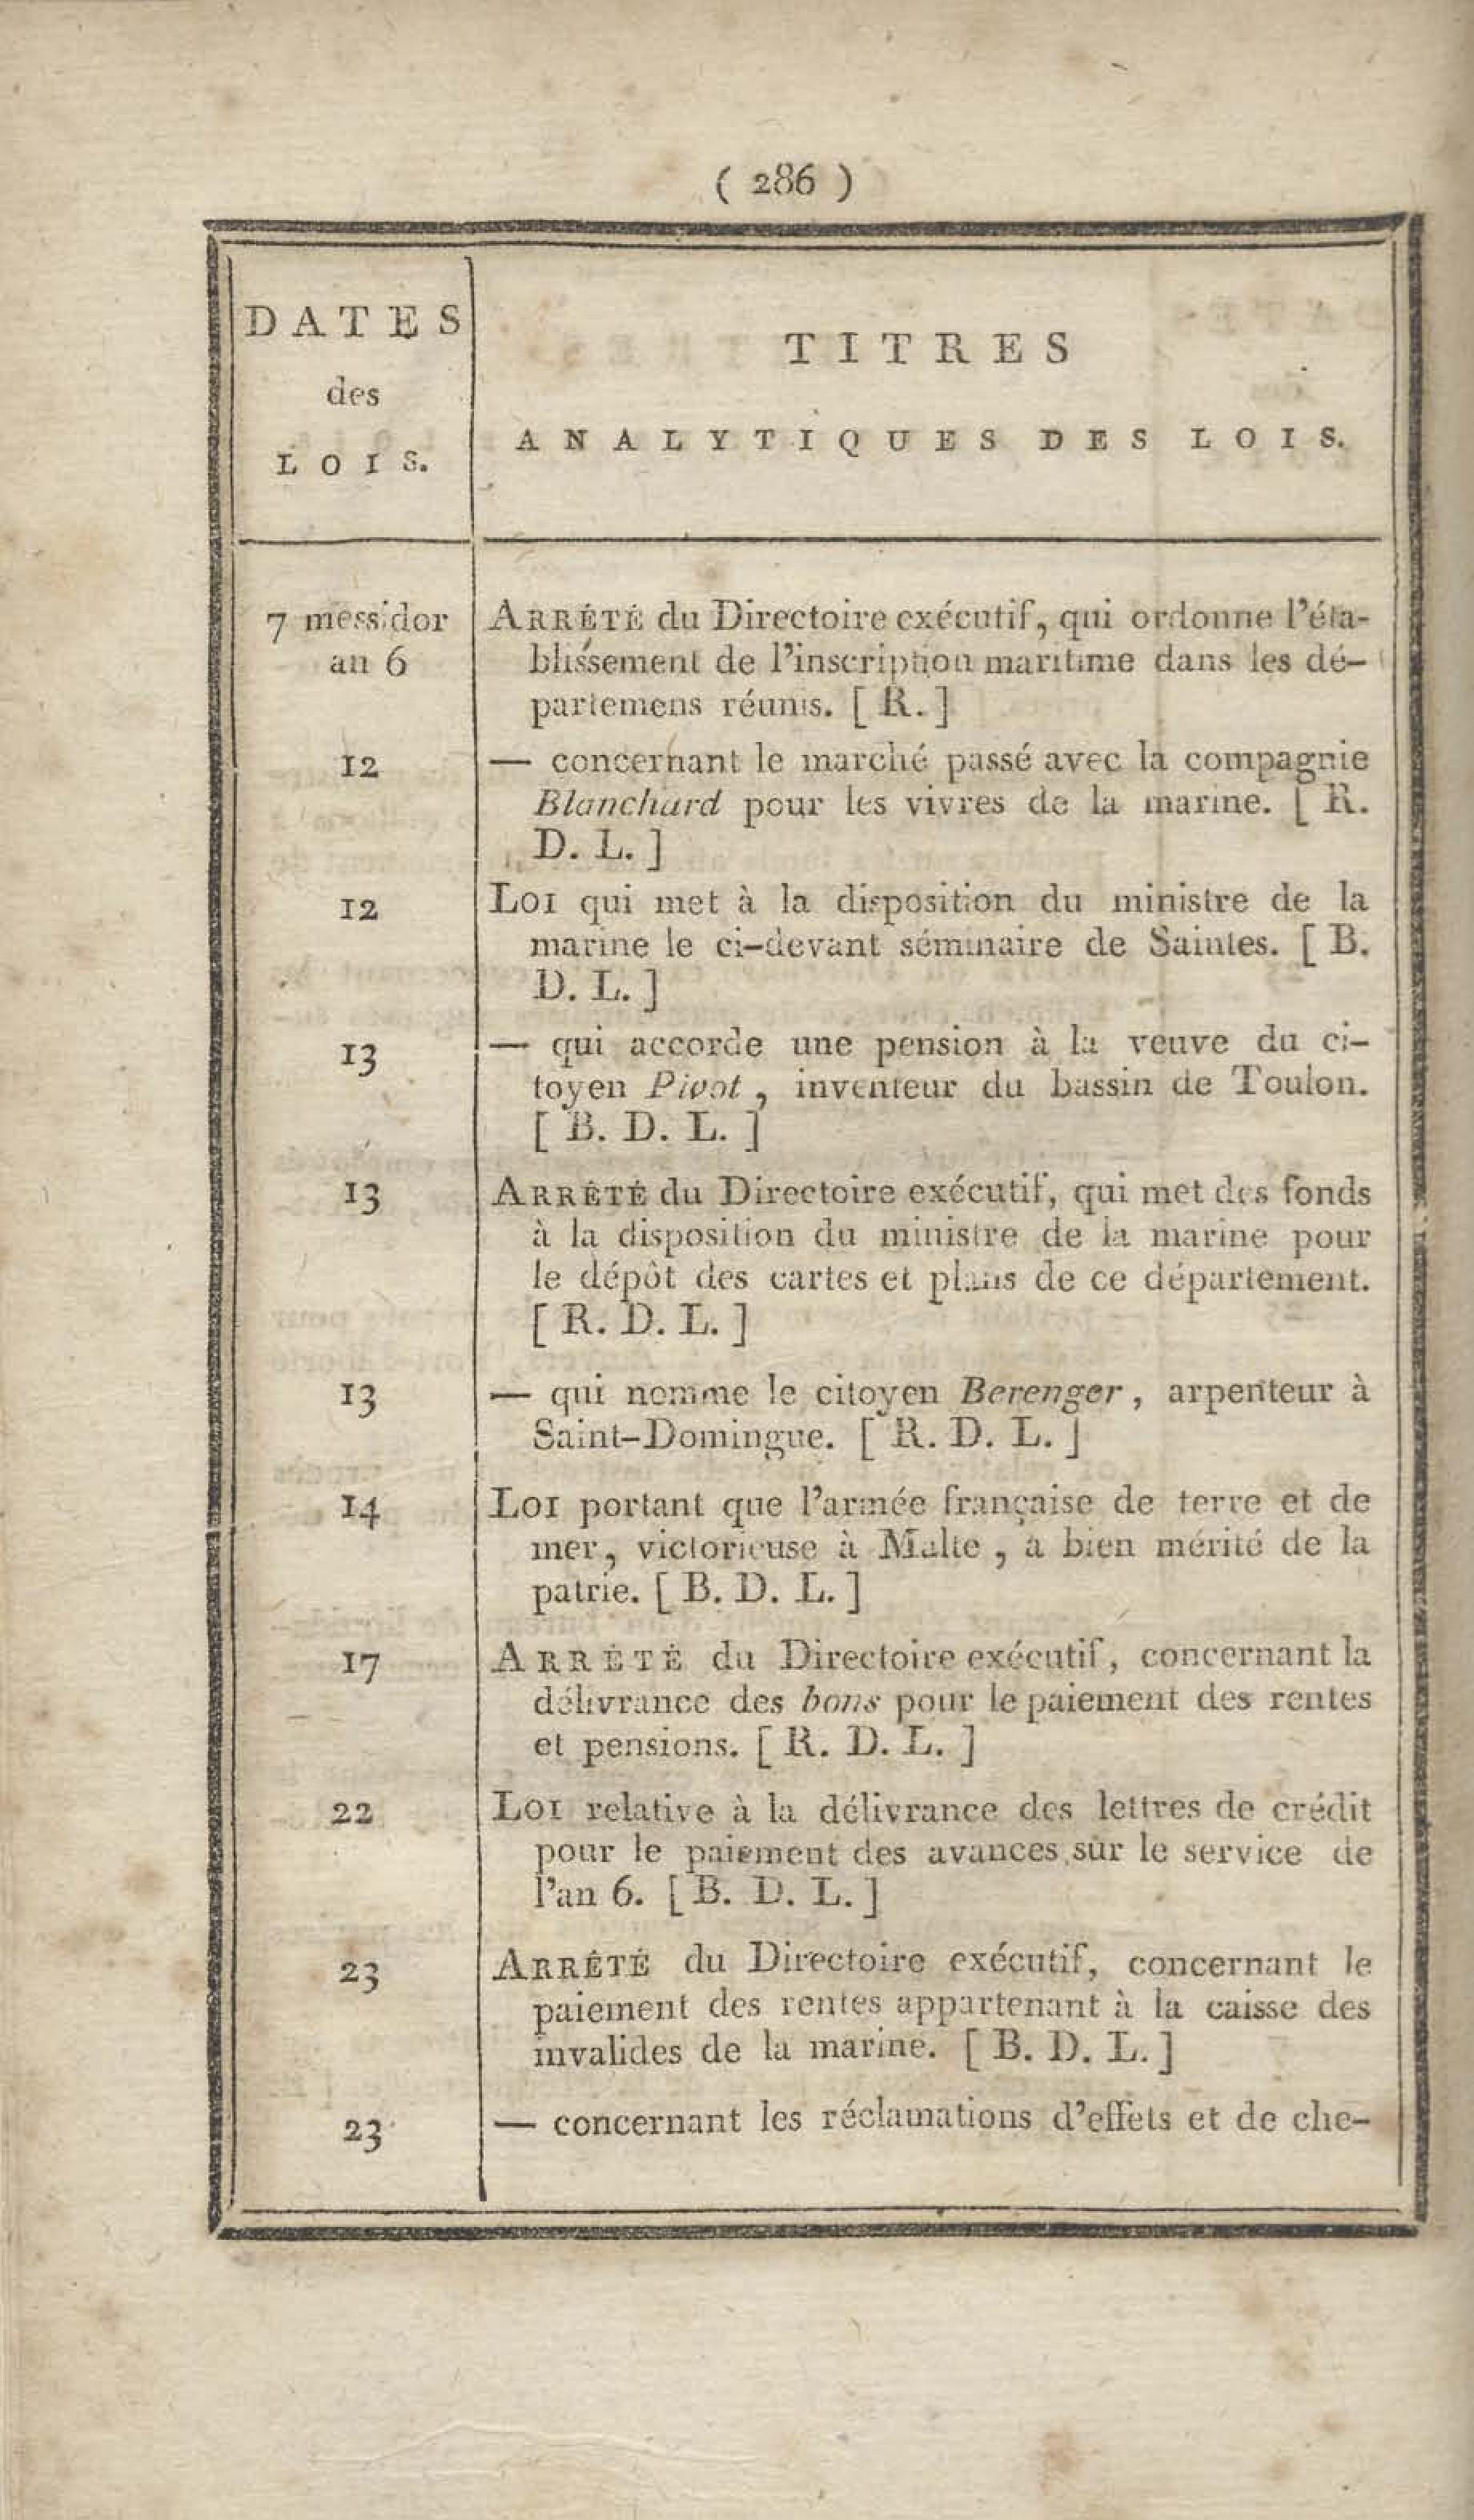 ( 286 )
DATES
des
LOIS.
TITRES
ANALYTIQUES DES LOIS.
7 messidor
an 6
ARRÊTÉ du Directoire exécutif, qui ordonne l'éta-
blissement de l'inscription maritime dans les dé-
partemens réunis. [ R. ]
12
— concernant le marché passé avec la compagnie
Blanchard pour les vivres de la marine. [ R.
D. L. ]
12
LOI qui met à la disposition du ministre de la
marine le ci-devant séminaire de Saintes. [ B.
D. L. ]
13
— qui accorde une pension à la veuve du ci-
toyen Pivot, inventeur du bassin de Toulon.
[ B. D. L. ]
13
ARRÊTÉ du Directoire exécutif, qui met des fonds
à la disposition du ministre de la marine pour
le dépôt des cartes et plans de ce département.
[ R. D. L. ]
13
— qui nomme le citoyen Berenger, arpenteur à
Saint-Domingue. [ R. D. L. ]
14
LOI portant que l'armée française de terre et de
mer, victorieuse à Malte, a bien mérité de la
patrie. [ B. D. L. ]
17
ARRÊTÉ du Directoire exécutif, concernant la
délivrance des bons pour le paiement des rentes
et pensions. [ R. D. L. ]
22
LOI relative à la délivrance des lettres de crédit
pour le paiement des avances sur le service de
l'an 6. [ B. D. L. ]
23
ARRÊTÉ du Directoire exécutif, concernant le
paiement des rentes appartenant à la caisse des
invalides de la marine. [ B. D. L. ]
23
— concernant les réclamations d'effets et de che-